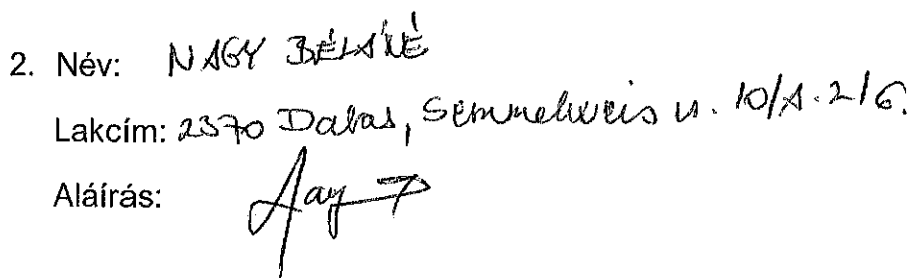 2. Név: NAGY BÉLÁNÉ
Lakcím: 2370 Dabas, Semmelweis u. 10/A. 2/6.
Aláírás: